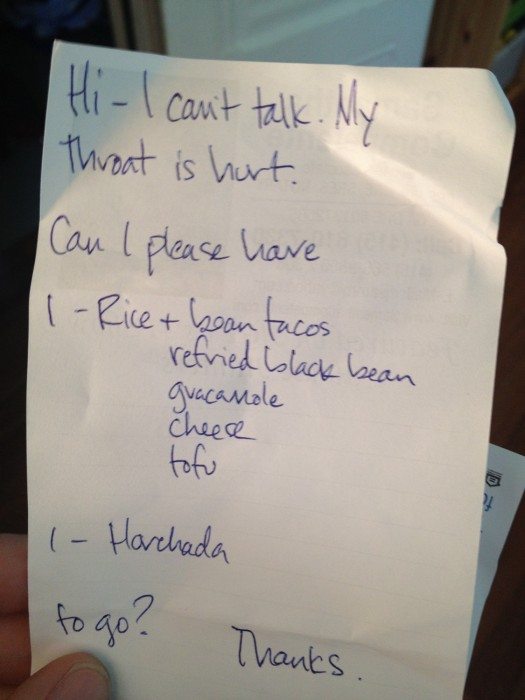 Hi - I can't talk. My
throat is hurt.
Can I please have
1 - Rice + bean tacos
refried black bean
guacamole
cheese
tofu
1 - Horchada
to go?
Thanks.